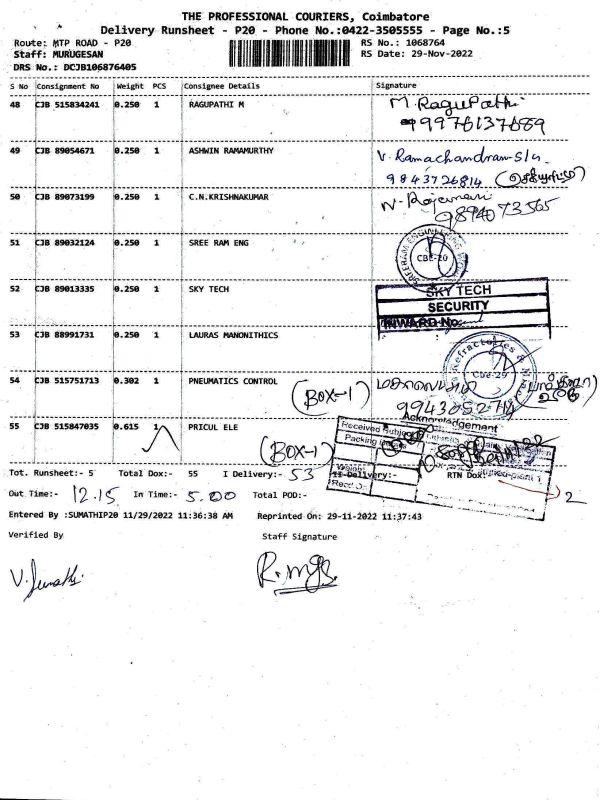 THE PROFESSIONAL COURIERS, Coimbatore
Delivery Runsheet - P20 - Phone No.:0422-3505555 - Page No.:5
Route: MTP ROAD - P20 RS No.: 1068764
Staff: MURUGESAN RS Date: 29-Nov-2022
DRS No.: DCJB106876405
S No Consignment No Weight PCS Consignee Details Signature
48 CJB 515834241 0.250 1 RAGUPATHI M M. RaguPathi
9976137689
49 CJB 89054671 0.250 1 ASHWIN RAMAMURTHY V. Ramachandran
9843726814
50 CJB 89073199 0.250 1 C.N.KRISHNAKUMAR
9894073565
51 CJB 89032124 0.250 1 SREE RAM ENG
CBE-20
52 CJB 89013335 0.250 1 SKY TECH SKY TECH
SECURITY
INWARD No:
53 CJB 88991731 0.250 1 LAURAS MANONITHICS
Refractories &
Cbe-29
54 CJB 515751713 0.302 1 PNEUMATICS CONTROL (BOX-1)
Acknowledgement
55 CJB 515847035 0.615 1 PRICUL ELE (BOX-1)
Received Subject
Packing
Weight
Tot. Runsheet:- 5 Total Dox:- 55 I Delivery:- 53 II Delivery:- RTN Dox:- 2
Out Time:- 12.15 In Time:- 5.00 Total POD:-
Entered By :SUMATHIP20 11/29/2022 11:36:38 AM Reprinted On: 29-11-2022 11:37:43
Verified By Staff Signature
V. Sumathi